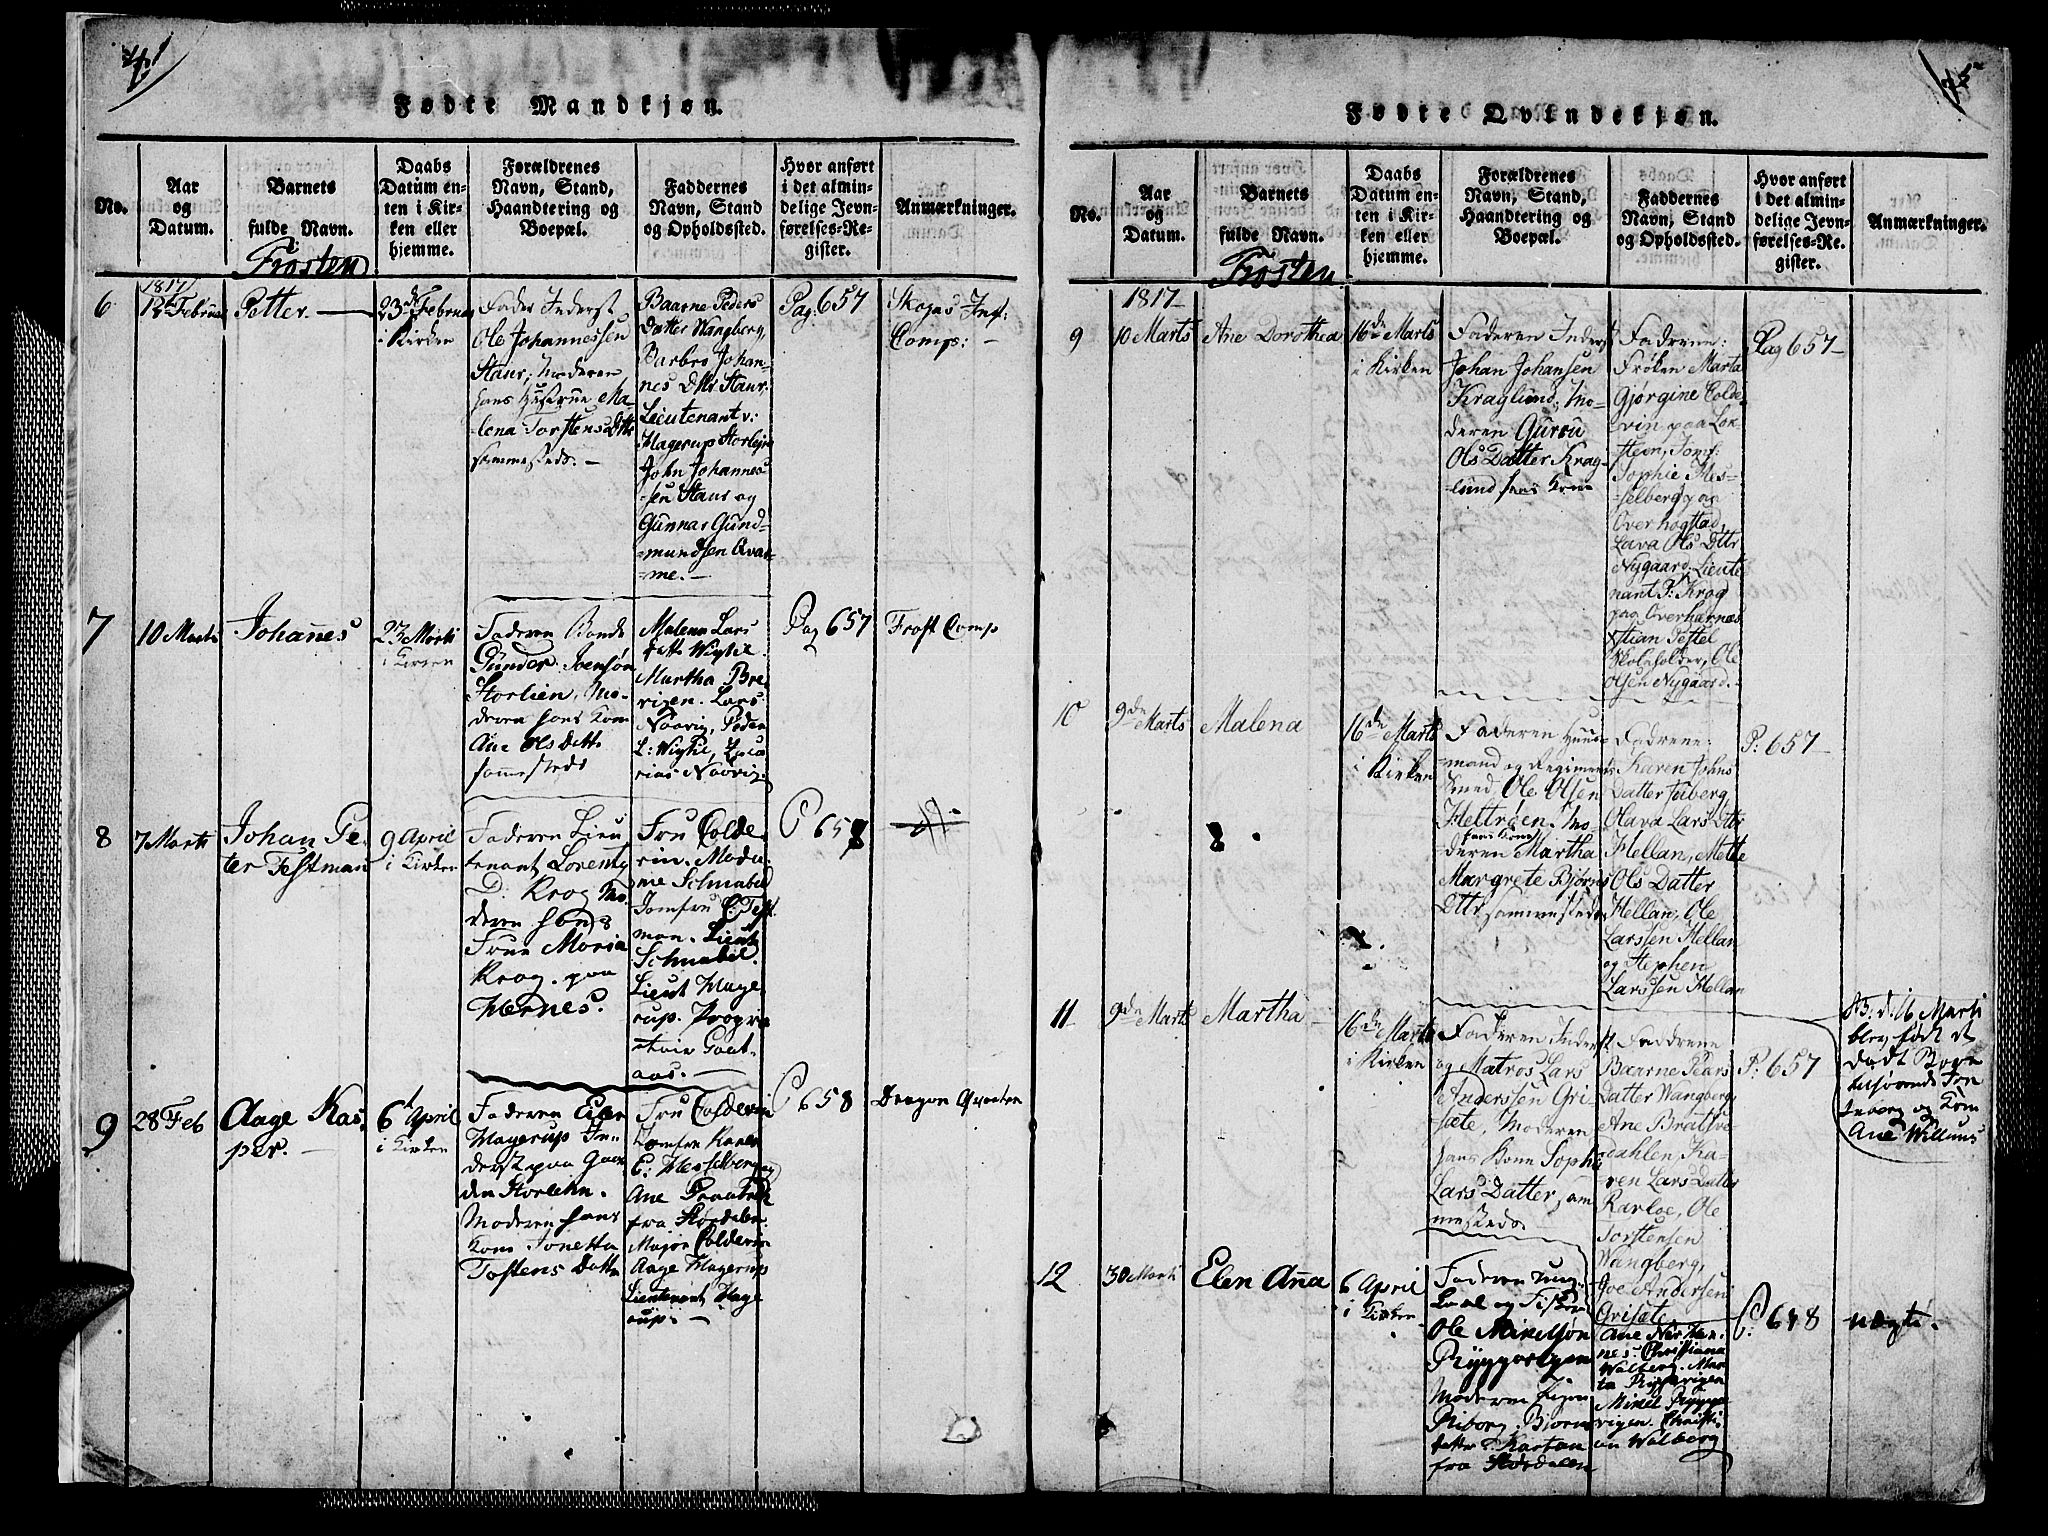 4
Fødte Mandkjøn.
No.
Aar
og
Datum.
Barnets
fulde Navn.
Daabs
Datum en-
ten i Kir-
ken eller
hjemme.
Forældrenes
Navn, Stand,
Haandtering og
Boepæl.
Faddernes
Navn, Stand
og Opholdssted.
Hvor anført
i det almin-
delige Jevn-
førelses-Re-
gister.
Anmærkninger.
Frosten
6
1817
12 Februar
Petter.
23de Februar
i Kirken
Fader Inderst
Ole Johannessen
Staur, Moderen
hans Hustrue Ma-
lena Torstensdttr
sammesteds.
Baarne Peders
Datter Wangberg,
Barbro Johan-
nes Dttr Staur,
Lieutenant v:
Hagerup Storlejn
John Johannes-
sen Staur og
Gunnar Gund-
mundsen Qvam-
me.
Pag: 657
Skogns Inf:
Comp:
7
10 Marts
Johañes
23 Marti
i Kirken
Faderen Bonde
Gunder Joensøn
Storlien, Mo-
deren hans Kone
Ane Olsdatter
sammesteds
Malena Lars
datter Wighe
Martha Bre-
vigen. Lars
Naavig, Peder
L: Wighe,
Naavig.
Pag 657
Frost Comp
8
7 Marti
Johan Pe-
ter Festman
9 April
i Kirken
Faderen Lieu
tenant Lorentz
D: Krog Mo-
deren hans
Frue Maria
Krog. paa
Hernes.
Fru Colde-
vin. Mada-
me Schnabel
Jomfru C: Fest
man. Lieut
Schnabel.
Lieut Hage
rup. Proprie
tair Goet-
aas.
P 658
9
28 Feb
Aage Kas-
per.
6 April
i Kirken
Faderen Eiler
Hagerup In-
derst paa Gaar
den Storlehn.
Moderen hans
Kone Jonetta
Tostens Datter
Fru Coldevin
Jomfru Karen
E: Hesselberg
Ane
fra Størdalen
Major Coldevin
Aage Hagerup
Lieutenant Hage
rup.
P 658
Dragon Qvarteer
5
Fødte Qvindekjøn.
No.
Aar
og
Datum.
Barnets
fulde Navn.
Daabs
Datum en-
ten i Kir-
ken eller
hjemme.
Forældrenes
Navn, Stand,
Haandtering og
Boepæl.
Faddernes
Navn, Stand
og Opholdssted.
Hvor anført
i det almin-
delige Jevn-
førelses-Re-
gister.
Anmærkninger.
Frosten
1817
9
10 Marts
Ane Dorothea
16de Marts
i Kirken
Faderen Inderst
Johan Johansen
Kraglund, Mo-
deren Guruu
Ols Datter Krag-
lund hans Kone
Fadrene:
Frøken Marta
Gjørgine Colde
vin paa Lok-
stein, Jomf:
Sophie Hes-
selberg paa
Overhogstad,
Lava Ols Dttr
Nygaard, Lieute
nant P: Krog
paa Overhærnæs
Stian Pettel
Skoleholder, Ole
Olsen Nygaard.
Pag 657
10
9de Marts
Malena
16de Marts
i Kirken
Faderen Huus-
mand og Regiments
Smed, Ole Olsen
Heltrøen, Mo-
hans Kone
deren Martha
Margrete Bjørns
Dttr sammesteds
Fadrene:
Karen Johns
Datter
Olava Lars Dttr
Hellan, Mette
Ols Datter
Hellan, Ole
Larssen Hellan
og Stephen
Larssen Hellan
P: 657
8
11
9de Marts
Martha
16de Marts
i Kirken
Faderen Inderst
og Matros Lars
Anderssen Gri-
sæte, Moderen
hans Kone Sophie
Lars Datter, sam
mesteds.
Fadrene
Baarne Pears
Datter Wangberg
Ane Bratsve-
dahlen, Ka-
ren Lars Datter
Rarloe, Ole
Torstensen
Wangberg,
Joe Andersen
Grisæt.
P: 657
NB: d: 16 Marti
blev født et
dødt Barn
tilhørende Jon
og Kone
Ane Willums
12
30 Marti
Elen Aña
6 April
i Kirken
Faderen Ung-
karl og Fisker
Ole Mikelsøn
Ryggevigen
Moderen Pigen
Riborg Bjørns
datter
fra Størdalen
Ane Her-
nes. Christiana
Walberg. Mar
ta Ryggvigen
Mikel Rygge
vigen. Christi-
an Walberg
P: 658
uægte.